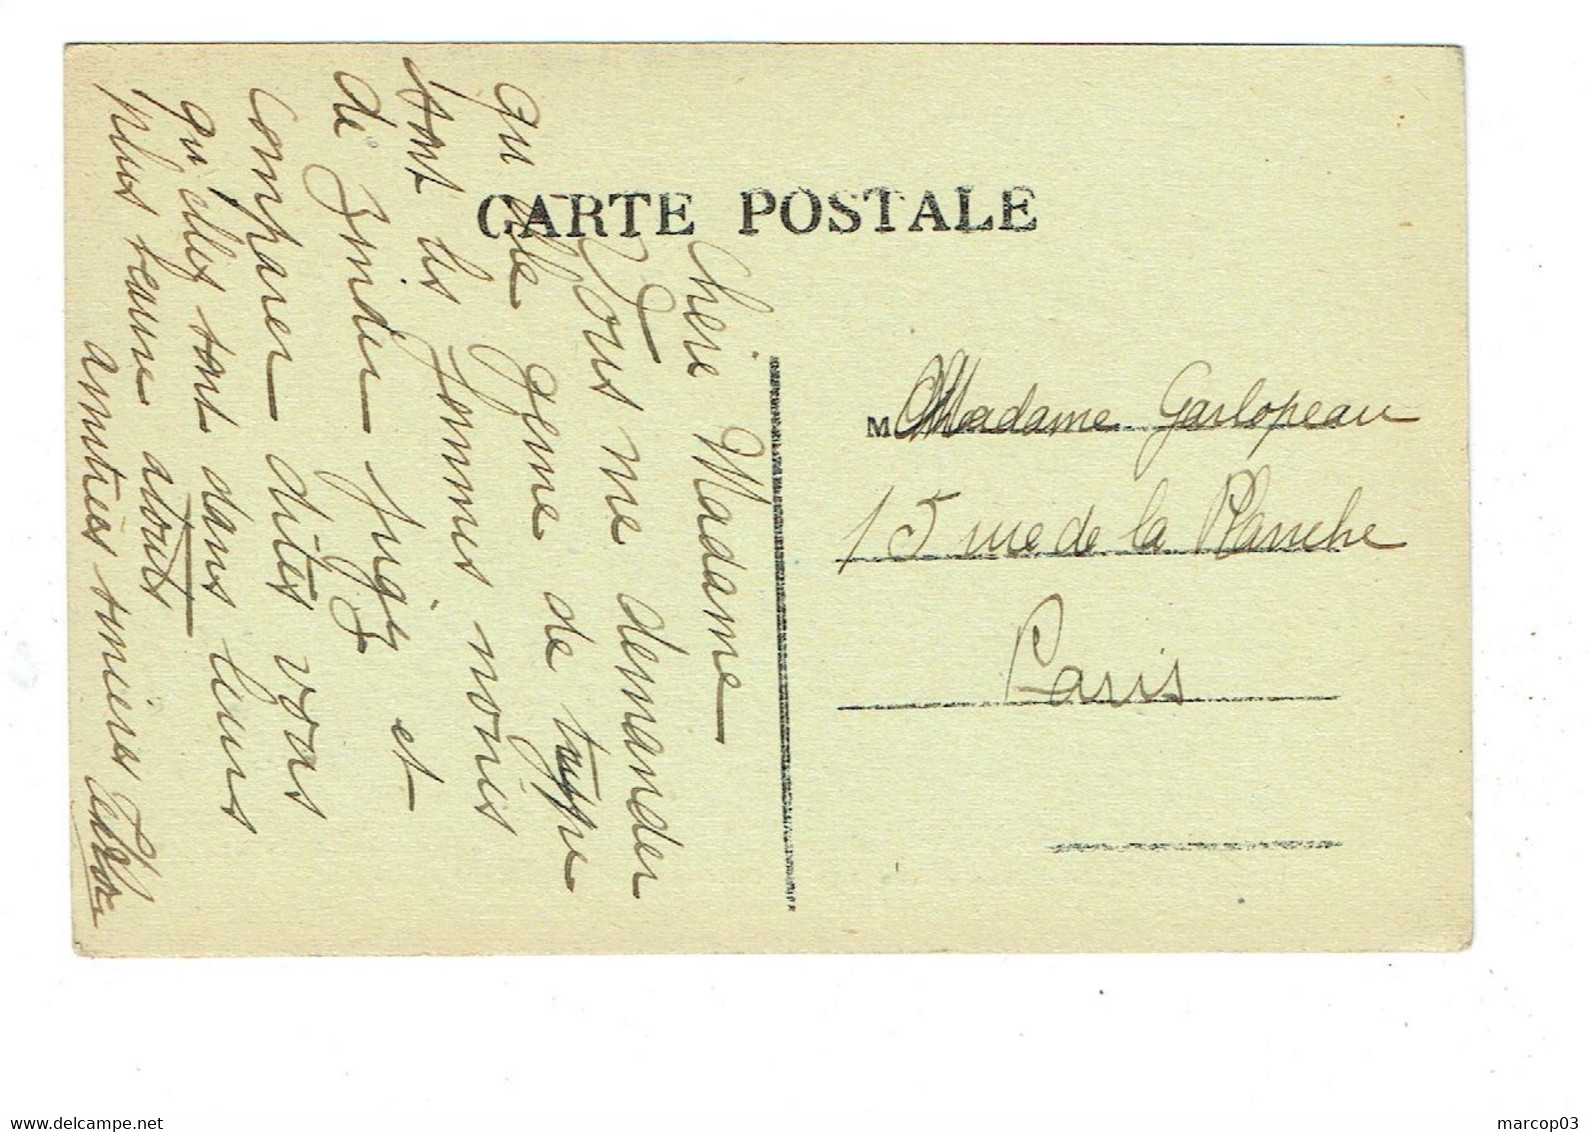 CARTE POSTALE
Chère Madame
Vous me demander
qu'elle genre de type
sont les femmes noires
de Zinder jugez et
comparer dites vous
qu'elles sont dans leurs
plus beaux atouts
amitiés sincères
M Madame Garlopeau
15 rue de la Planche
Paris
marcop03